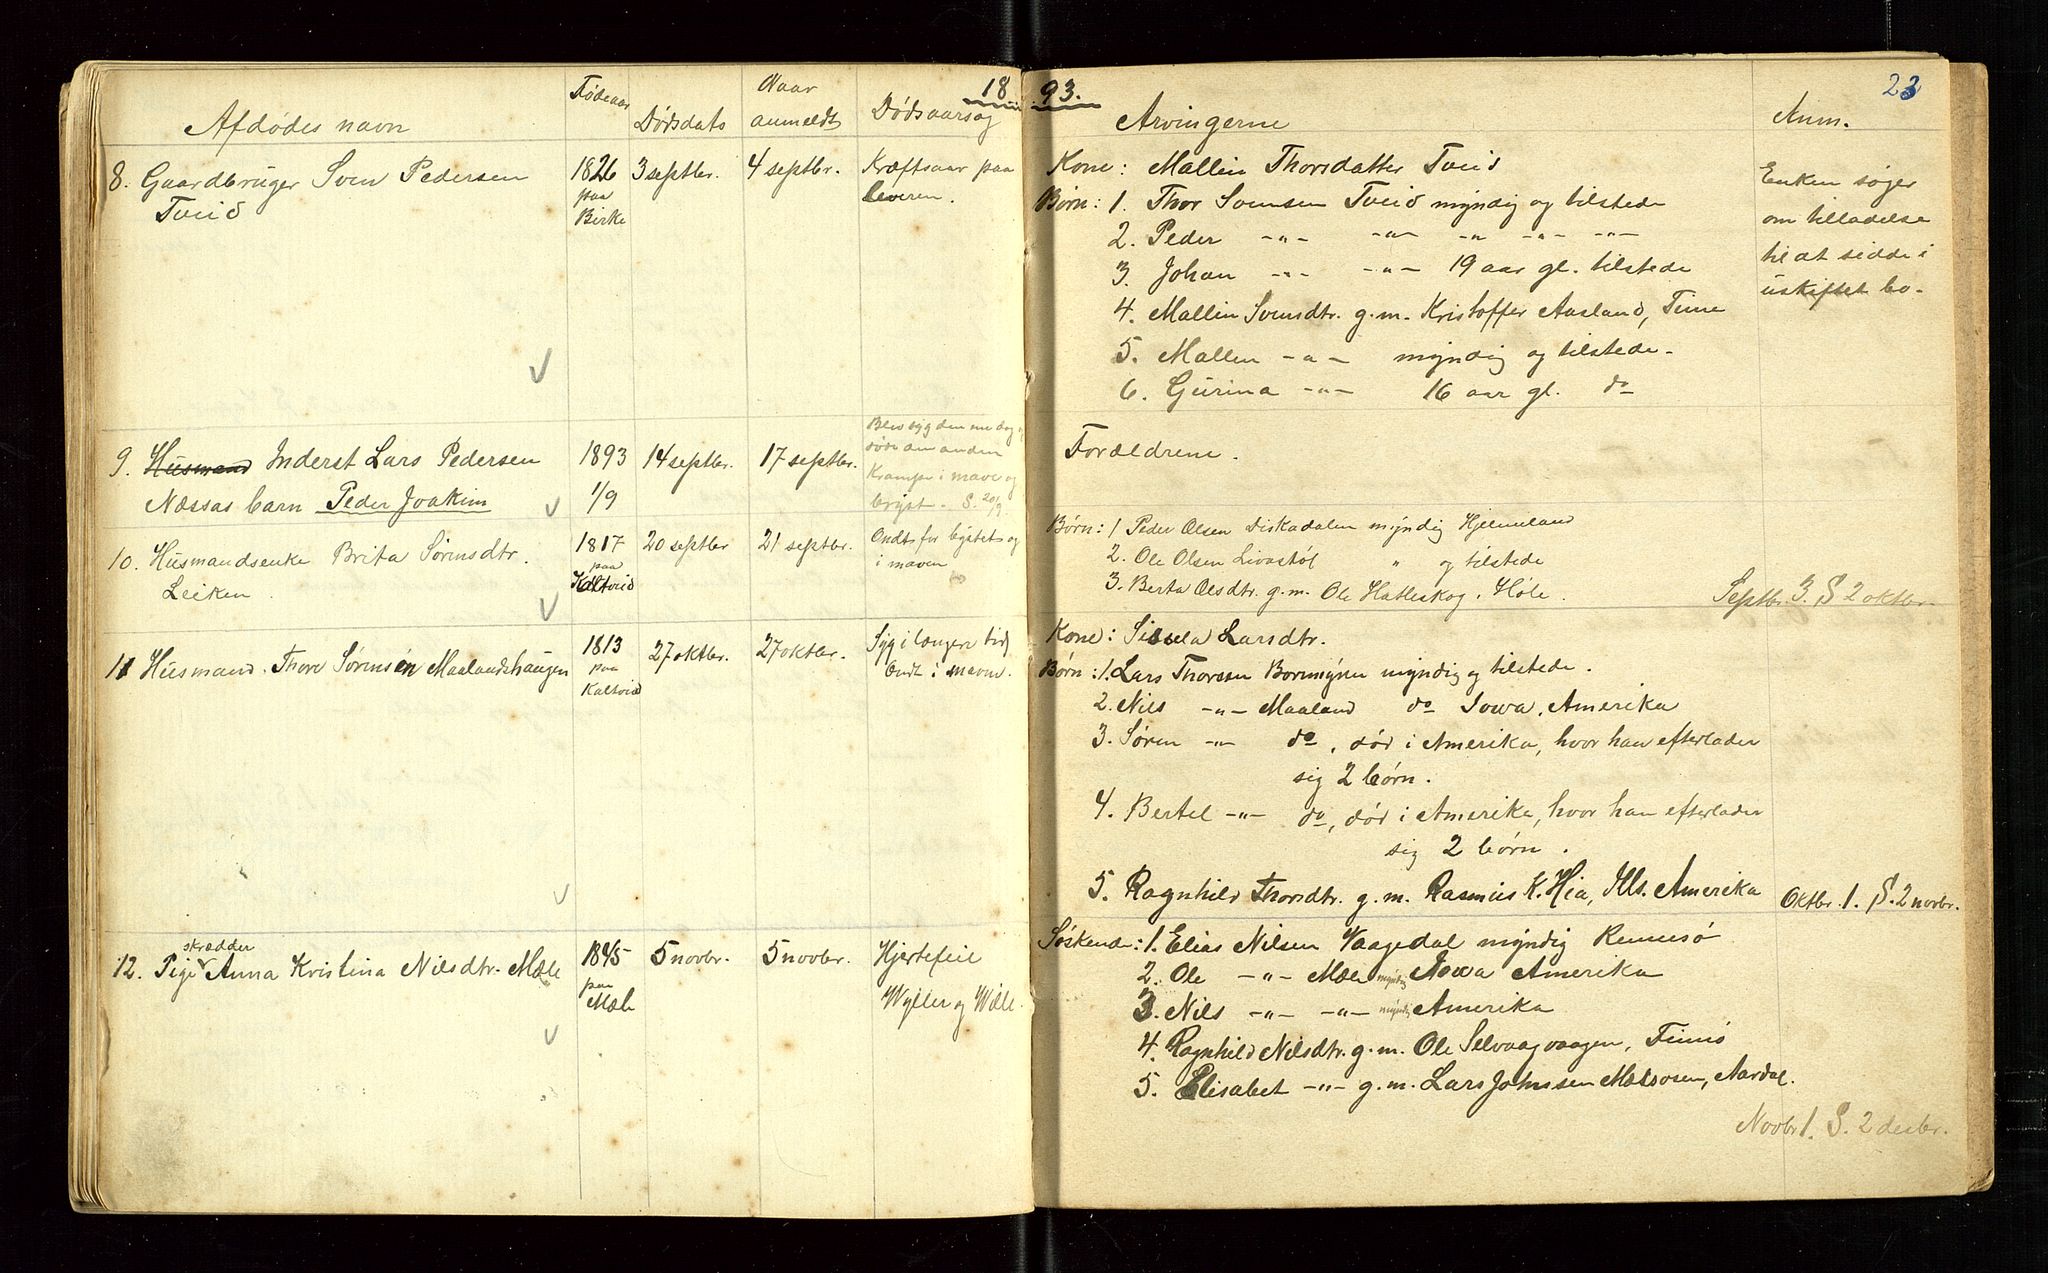 1893.
23
Afdødes navn | Fødeaar | Dødsdato | Naar anmeldt | Dødsaarsag | Arvingerne | Anm.
8. Gaardbruger Sven Pedersen
Tveid
1826
paa
Birke
3 septbr.
4 septbr.
Kræftsaar paa
leveren.
Kone: Mallin Thorsdatter Tveid
Børn: 1. Thor Svensen Tveid myndig og tilstede
2. Peder -"- -"- -"- -"- -"-
3. Johan -"- -"- 19 aar gl. tilstede
4. Mallin Svensdtr. g.m. Kristoffer Aasland, Time
5. Mallen -"- myndig og tilstede.
6. Gurina -"- 16 aar gl. do
Enken søger
om tilladelse
til at sidde i
uskiftet bo.
9. Husmand Inderst Lars Pedersen
Næssas barn Peder Joakim
1893
1/9
14 septbr.
17 septbr.
Blev syg den ene dag og
døde den anden
Krampe i mave og
bryst. S. 20/9
Forældrene.
10. Husmandsenke Brita Sørensdtr.
Leiken.
1817
paa
Kaltveid
20 septbr
21 septbr.
Ondt for brystet og
i maven
Børn: 1 Peder Olsen Diskadalen myndig Hjelmeland
2. Ole Olsen Livastøl " og tilstede
3. Berta Olsdtr. g.m. Ole Hatleskog, Høle.
Septbr. 3. S 2 oktbr.
11 Husmand Thore Sørensen Maalandshaugen
1813
paa
Kaltveid
27 oktbr.
27 oktbr.
Syg i længere tid
Ondt i maven.
Kone: Sissela Larsdtr.
Børn: 1. Lars Thorsen Bormyren myndig og tilstede.
2. Nils -"- Maaland do Iowa, Amerika
3. Søren -"- do, død i Amerika, hvor han efterlader
sig 2 børn.
4. Bertel -"- do, død i Amerika, hvor han efterlader
sig 2 børn.
5. Ragnhild Thorsdtr. g.m. Rasmus K. Hia, Ills. Amerika
Oktbr. 1. S. 2 novbr.
skrædder
12. Pige Anna Kristina Nilsdtr. Mæle
1845
paa
Mæle
5 novbr.
5 novbr.
Hjertefeil
Wyller og Wille.
Søskende: 1. Elias Nilsen Vaagedal myndig Rennesø
2. Ole -"- Mæle myndig Iowa Amerika
3. Nils -"- -"- myndig Amerika
4. Ragnhild Nilsdtr. g.m. Ole Selvaagvaagen, Finnø
5. Elisabet -"- g.m. Lars Johnsen Mælsosen, Aardal.
Novbr 1. S. 2 decbr.